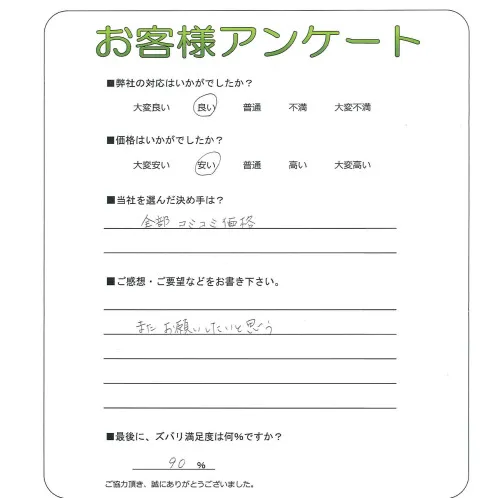 お客様アンケート
■弊社の対応はいかがでしたか？
大変良い 良い 普通 不満 大変不満
■価格はいかがでしたか？
大変安い 安い 普通 高い 大変高い
■当社を選んだ決め手は？
全部 コミコミ価格
■ご感想・ご要望などをお書き下さい。
また お願いしたいと思う
■最後に、ズバリ満足度は何％ですか？
90 ％
ご協力頂き、誠にありがとうございました。